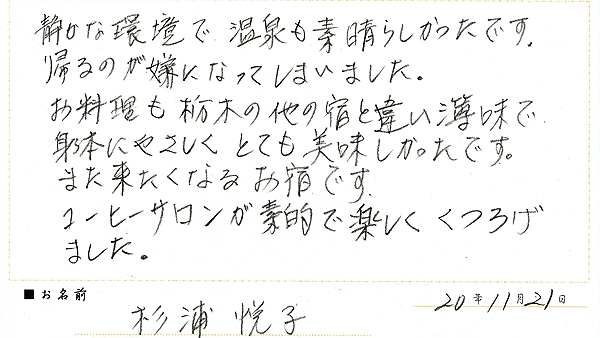 静かな環境で 温泉も素晴らしかったです。
帰るのが嫌になってしまいました。
お料理も栃木の他の宿と違い薄味で
身体にやさしく とても美味しかったです。
また来たくなるお宿です。
コーヒーサロンが素的で楽しく くつろげ
ました。
■お名前 杉浦 悦子 20年11月21日